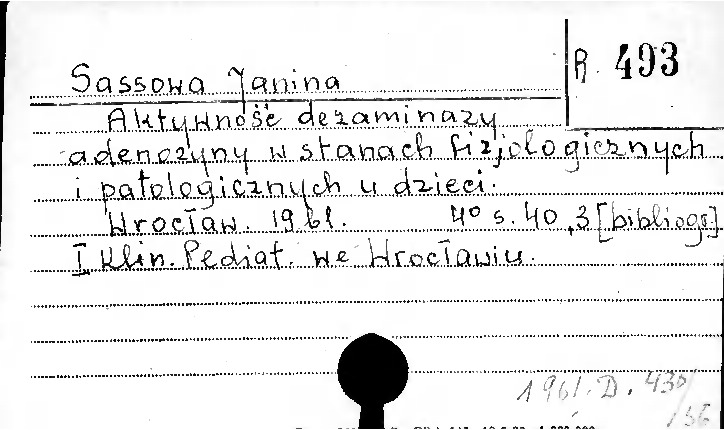 R. 493
Sassowa Janina
Aktywność dezaminazy
adenozyny w stanach fizjologicznych
i patologicznych u dzieci.
Wrocław. 1961. 4° s. 40,3 [bibliogr]
I Klin. Pediat. we Wrocławiu.
1961.D.430
/56